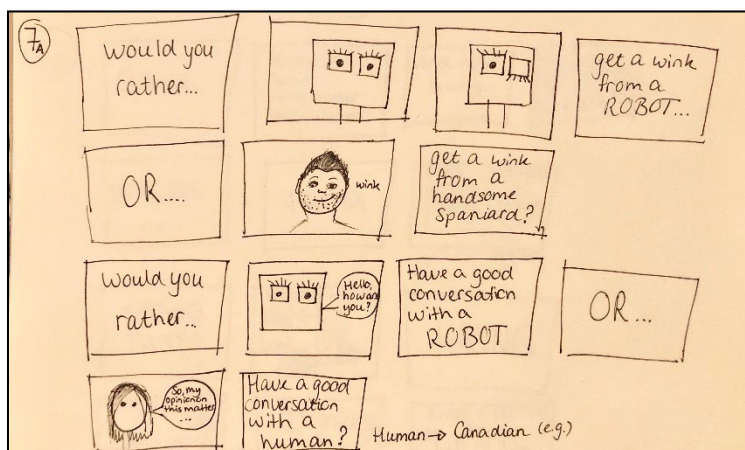 7A
would you
rather...
get a wink
from a
ROBOT...
OR....
wink
get a wink
from a
handsome
Spaniard?
would you
rather...
Hello,
how are
you?
Have a good
conversation
with a
ROBOT
OR...
So, my
opinion on
this matter
...
Have a good
conversation
with a
human?
Human → Canadian (e.g.)